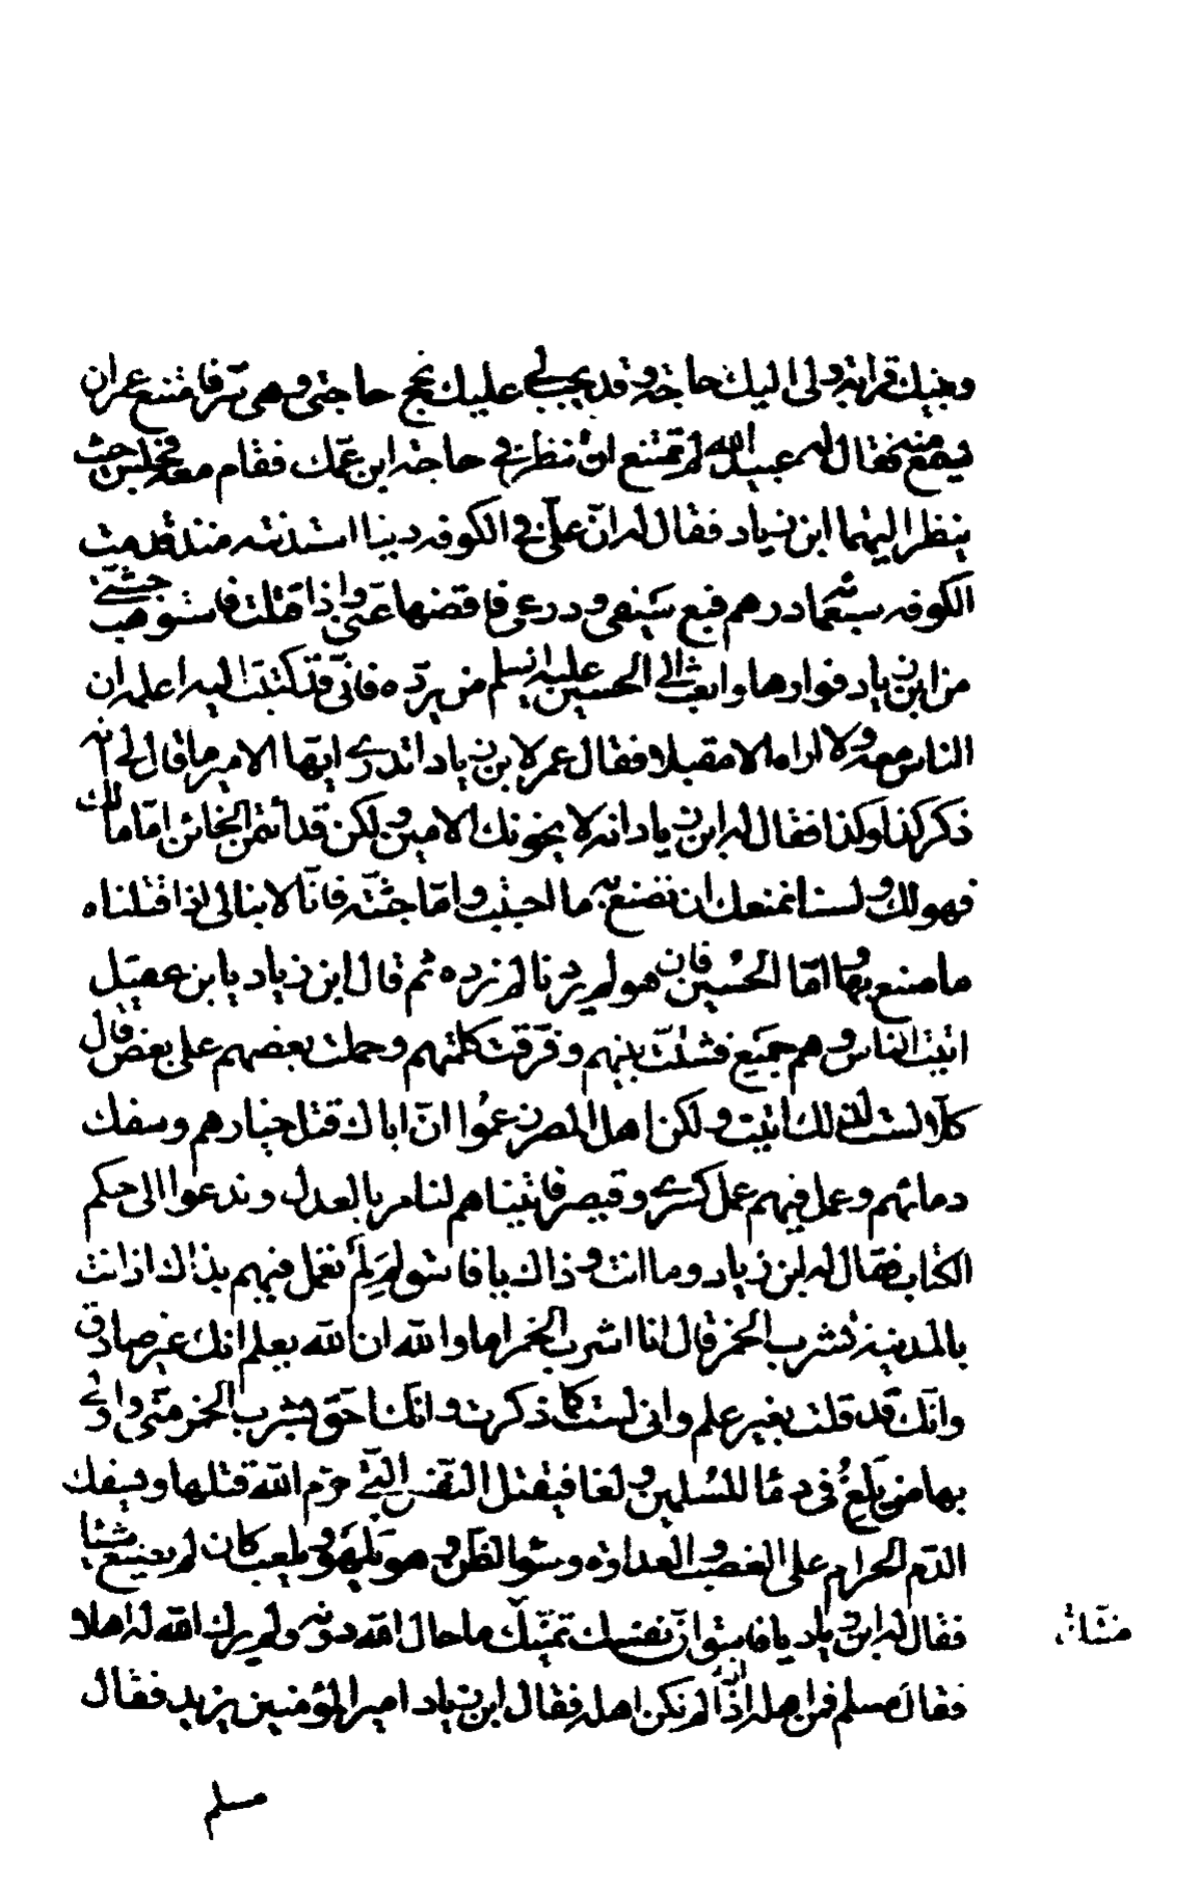 وبينك قرابة ولى اليك حاجة وقد يجب لي عليك نجح حاجتى وهى سر فامتنع عمر ان
يسمع منه فقال له عبيد الله لم تمتنع ان تنظر في حاجة ابن عمك فقام معه فجلس حيث
ينظر اليهما ابن زياد فقال له ان علىّ في الكوفه دينا استدنته منذ قدمت
الكوفه سبعمائة درهم فبع سيفى ودرعى فاقضها عنّى واذا قتلت فاستوهب جثتي
من ابن زياد فوارها وابعث الي الحسين عليه السلم من يردّه فانّى قد كتبت اليه اعلمه ان
الناس معه ولا اراه الا مقبلا فقال عمر لابن زياد اتدري ايّها الامير ما قال لي انه
ذكر كذا وكذا فقال له ابن زياد انه لا يخونك الامين ولكن قد أتمن الخائن امّا مالك
فهو لك ولسنا نمنعك ان تصنع به ما احببت وامّا جثّته فانّا لا نبالى اذا قتلناه
ما صنع بها وامّا الحُسين فان هو لم يردنا لم نرده ثم قال ابن زياد يا بن عقيل
اتيت الناس وهم جميع فشتّت بينهم وفرّقت كلمتهم وحملت بعضهم على بعض قال
كلّا لست لذلك اتيت ولكن اهل المصر زعمُوا انّ اباك قتل خيارهم وسفك
دمائهم وعمل فيهم عمل كسري وقيصر فاتيناهم لنامر بالعدل وندعوا الى حكم
الكتاب فقال له ابن زياد وما انت وذاك يا فاسق لِمَ لم تعمل فيهم بذاك اذ انت
بالمدينة تشرب الخمر قال انا اشرب الخمر اما والله ان الله يعلم انك غير صادق
وانّك قد قلت بغير علم وانى لست كما ذكرت وانّك احق بشرب الخمر منّى واولي
بها من يلغُ فى دمآ المسُلمين ولغا فيقتل النّفس الّتي حرّم الله قتلها ويسفك
الدّم الحرام على الغصب والعداوة وسوء الظّنّ وهو يلهو ويلعب كان لم يصنع شيئا
فقال له ابن زياد يا فاسق انّ نفسك تمنّيك ما حال الله دونه ولم يرك الله له اهلا
فقال مسلم فمن اهله اذا لم نكن اهله فقال ابن زياد امير المؤمنين يزيد فقال
مسلم